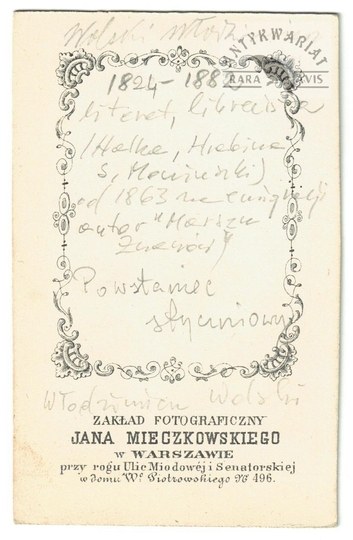 Wolski Włodz
ANTYKWARIAT
RARA AVIS
1824-1882
literat, librecista
(Halka, Hrabina
S. Moniuszki)
od 1863 na emigracji
autor "Marszu
Żuawów"
Powstaniec
styczniowy
Włodzimierz Wolski
ZAKŁAD FOTOGRAFICZNY
JANA MIECZKOWSKIEGO
w WARSZAWIE
przy rogu Ulic Miodowéj i Senatorskiej
w domu Wº Piotrowskiego Nº 496.